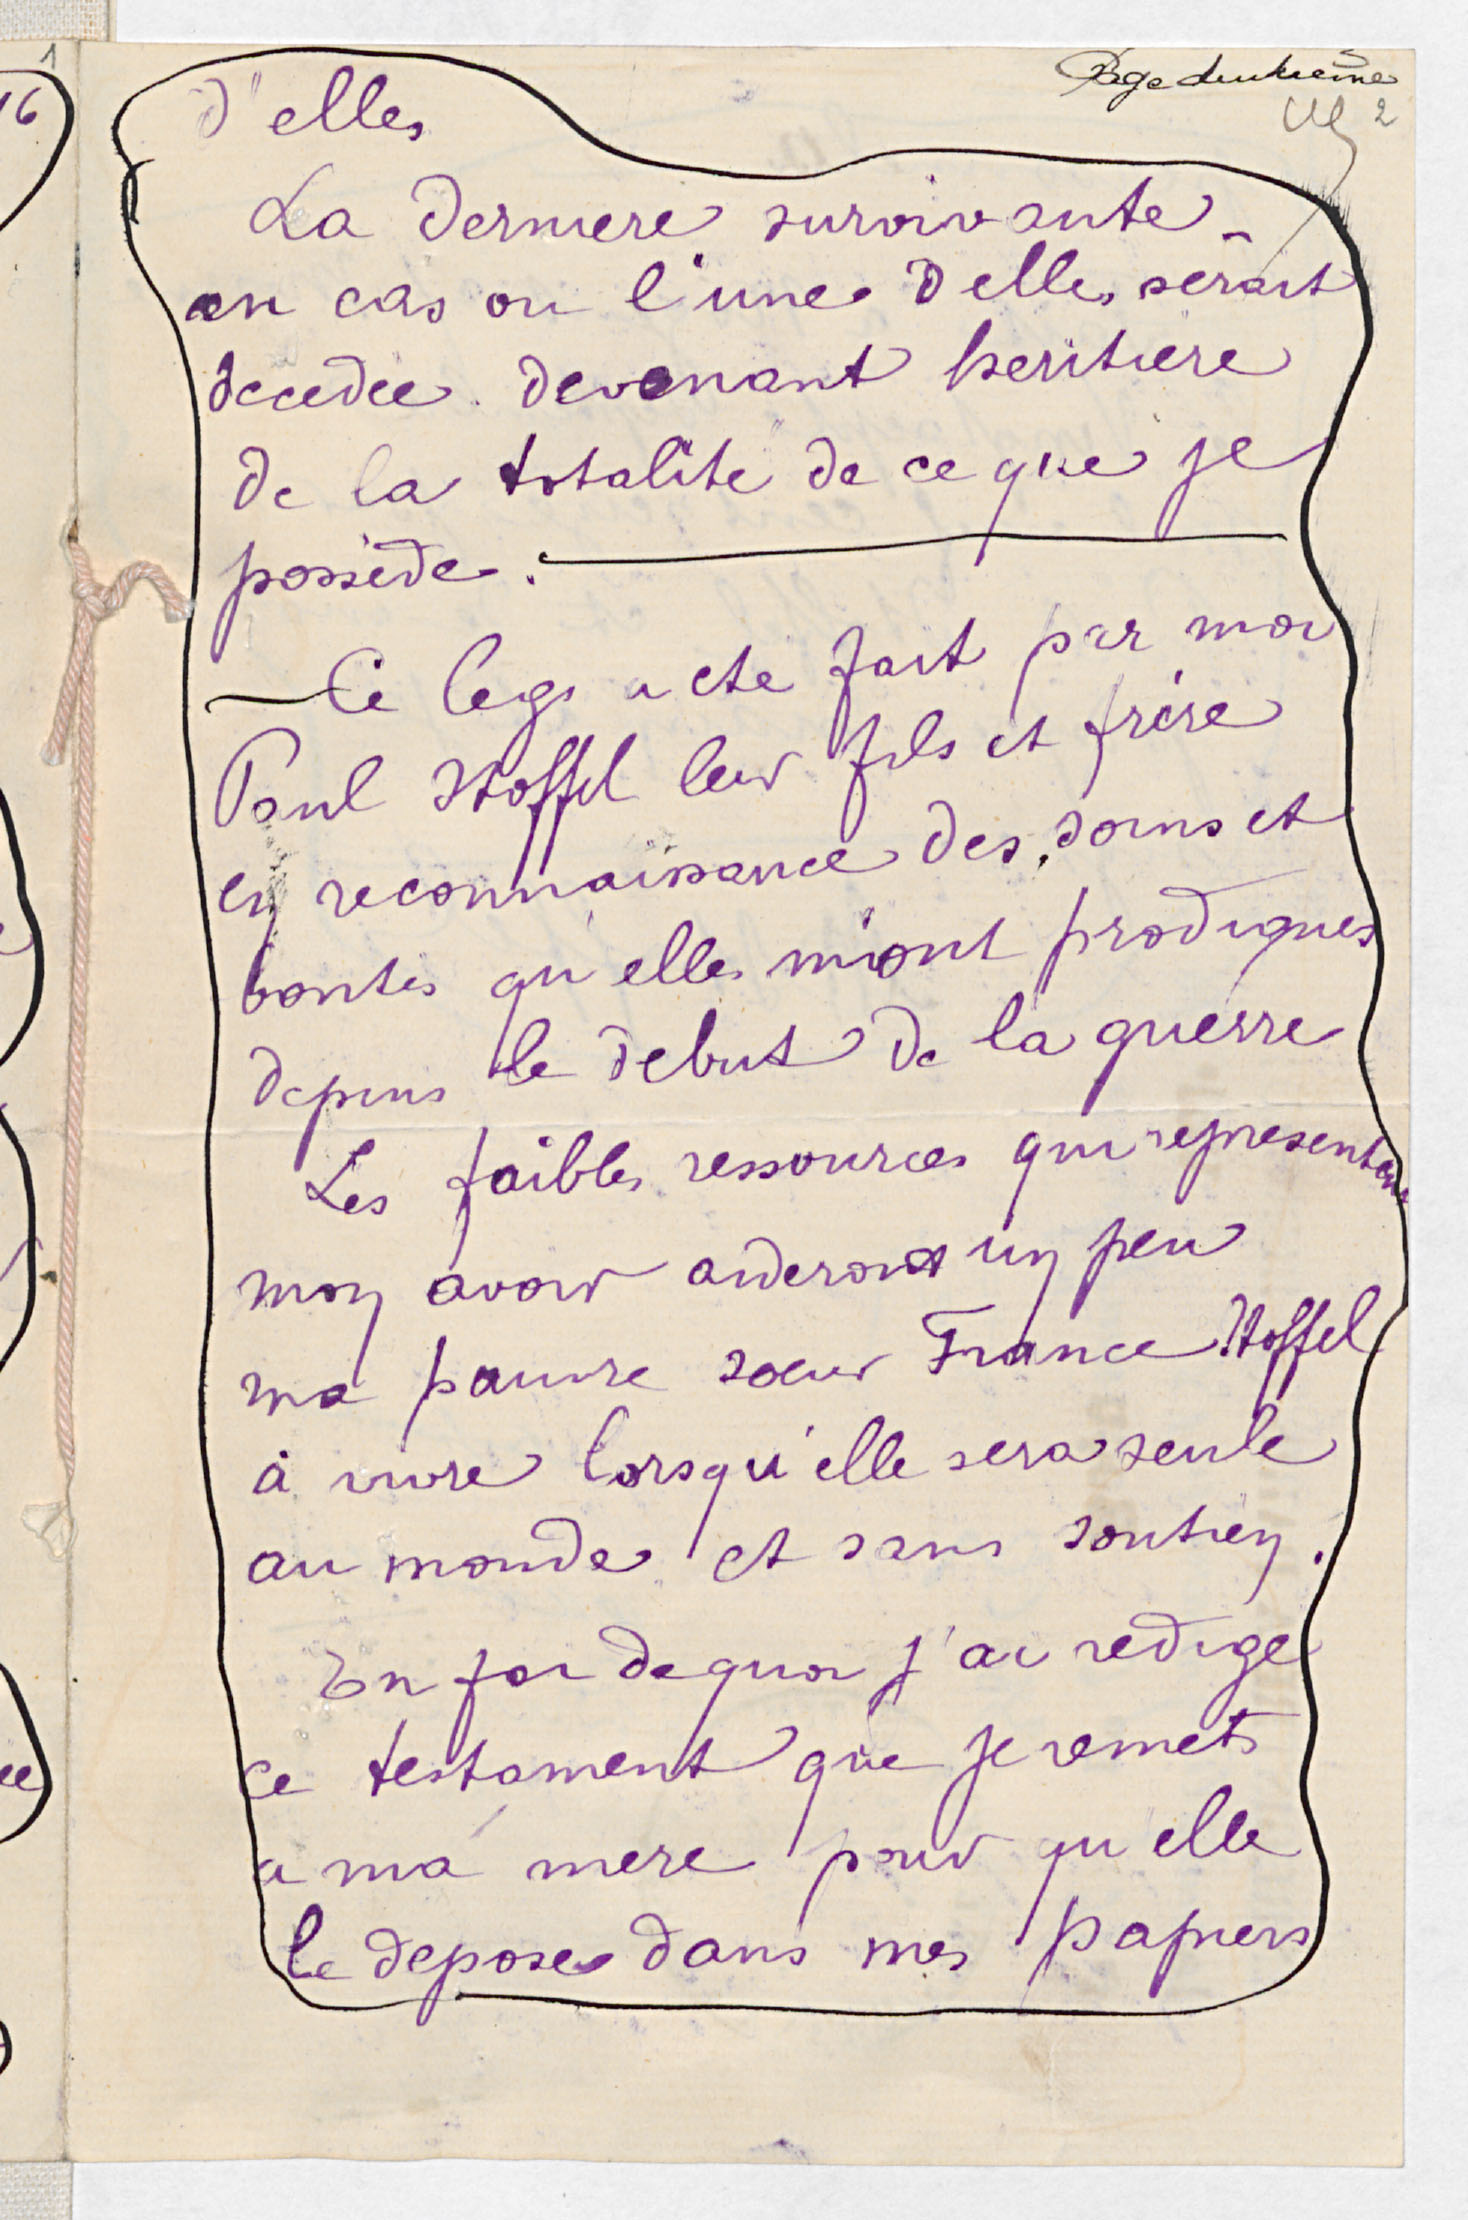 Page deuxième
2
d'elles
La derniere survivante_
en cas ou l'une d'elles serait
decedée devenant heritiere
de la totalité de ce que je
possède.
— Ce legs a ete fait par moi
Paul Stoffel leur fils et frère
en reconnaissance des soins et
bontés qu'elles m'ont prodigues
depuis le debut de la guerre
Les faibles ressources qui representent
mon avoir aideront un peu
ma pauvre soeur France Stoffel
à vivre lorsqu'elle sera seule
au monde et sans soutien.
En foi de quoi j'ai redige
ce testament que je remets
a ma mere pour qu'elle
le depose dans mes papiers
1
16